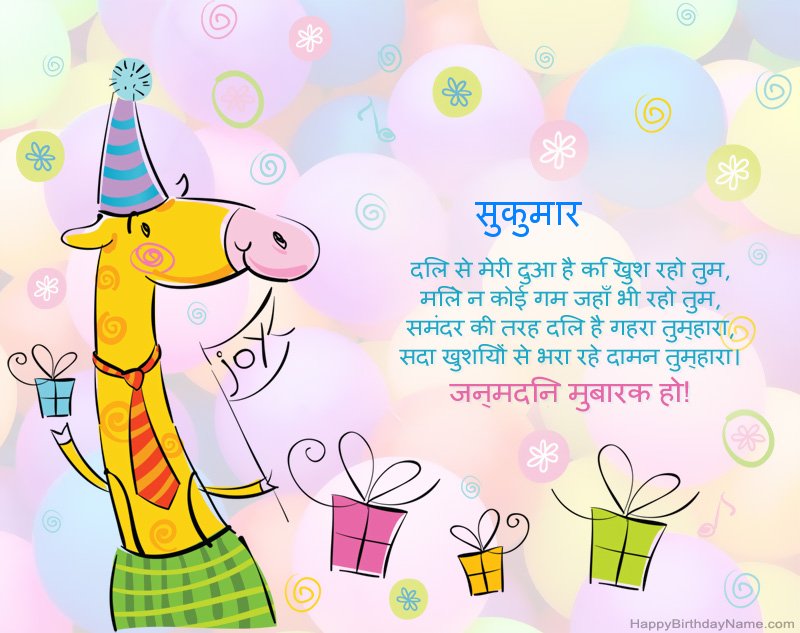 सुकुमार
दलि से मेरी दुआ है कि खुश रहो तुम,
मलिे न कोई गम जहाँ भी रहो तुम,
समंदर की तरह दलि है गहरा तुम्हारा,
सदा खुशयिों से भरा रहे दामन तुम्हारा।
जन्मदनि मुबारक हो!
joy
HappyBirthdayName.com